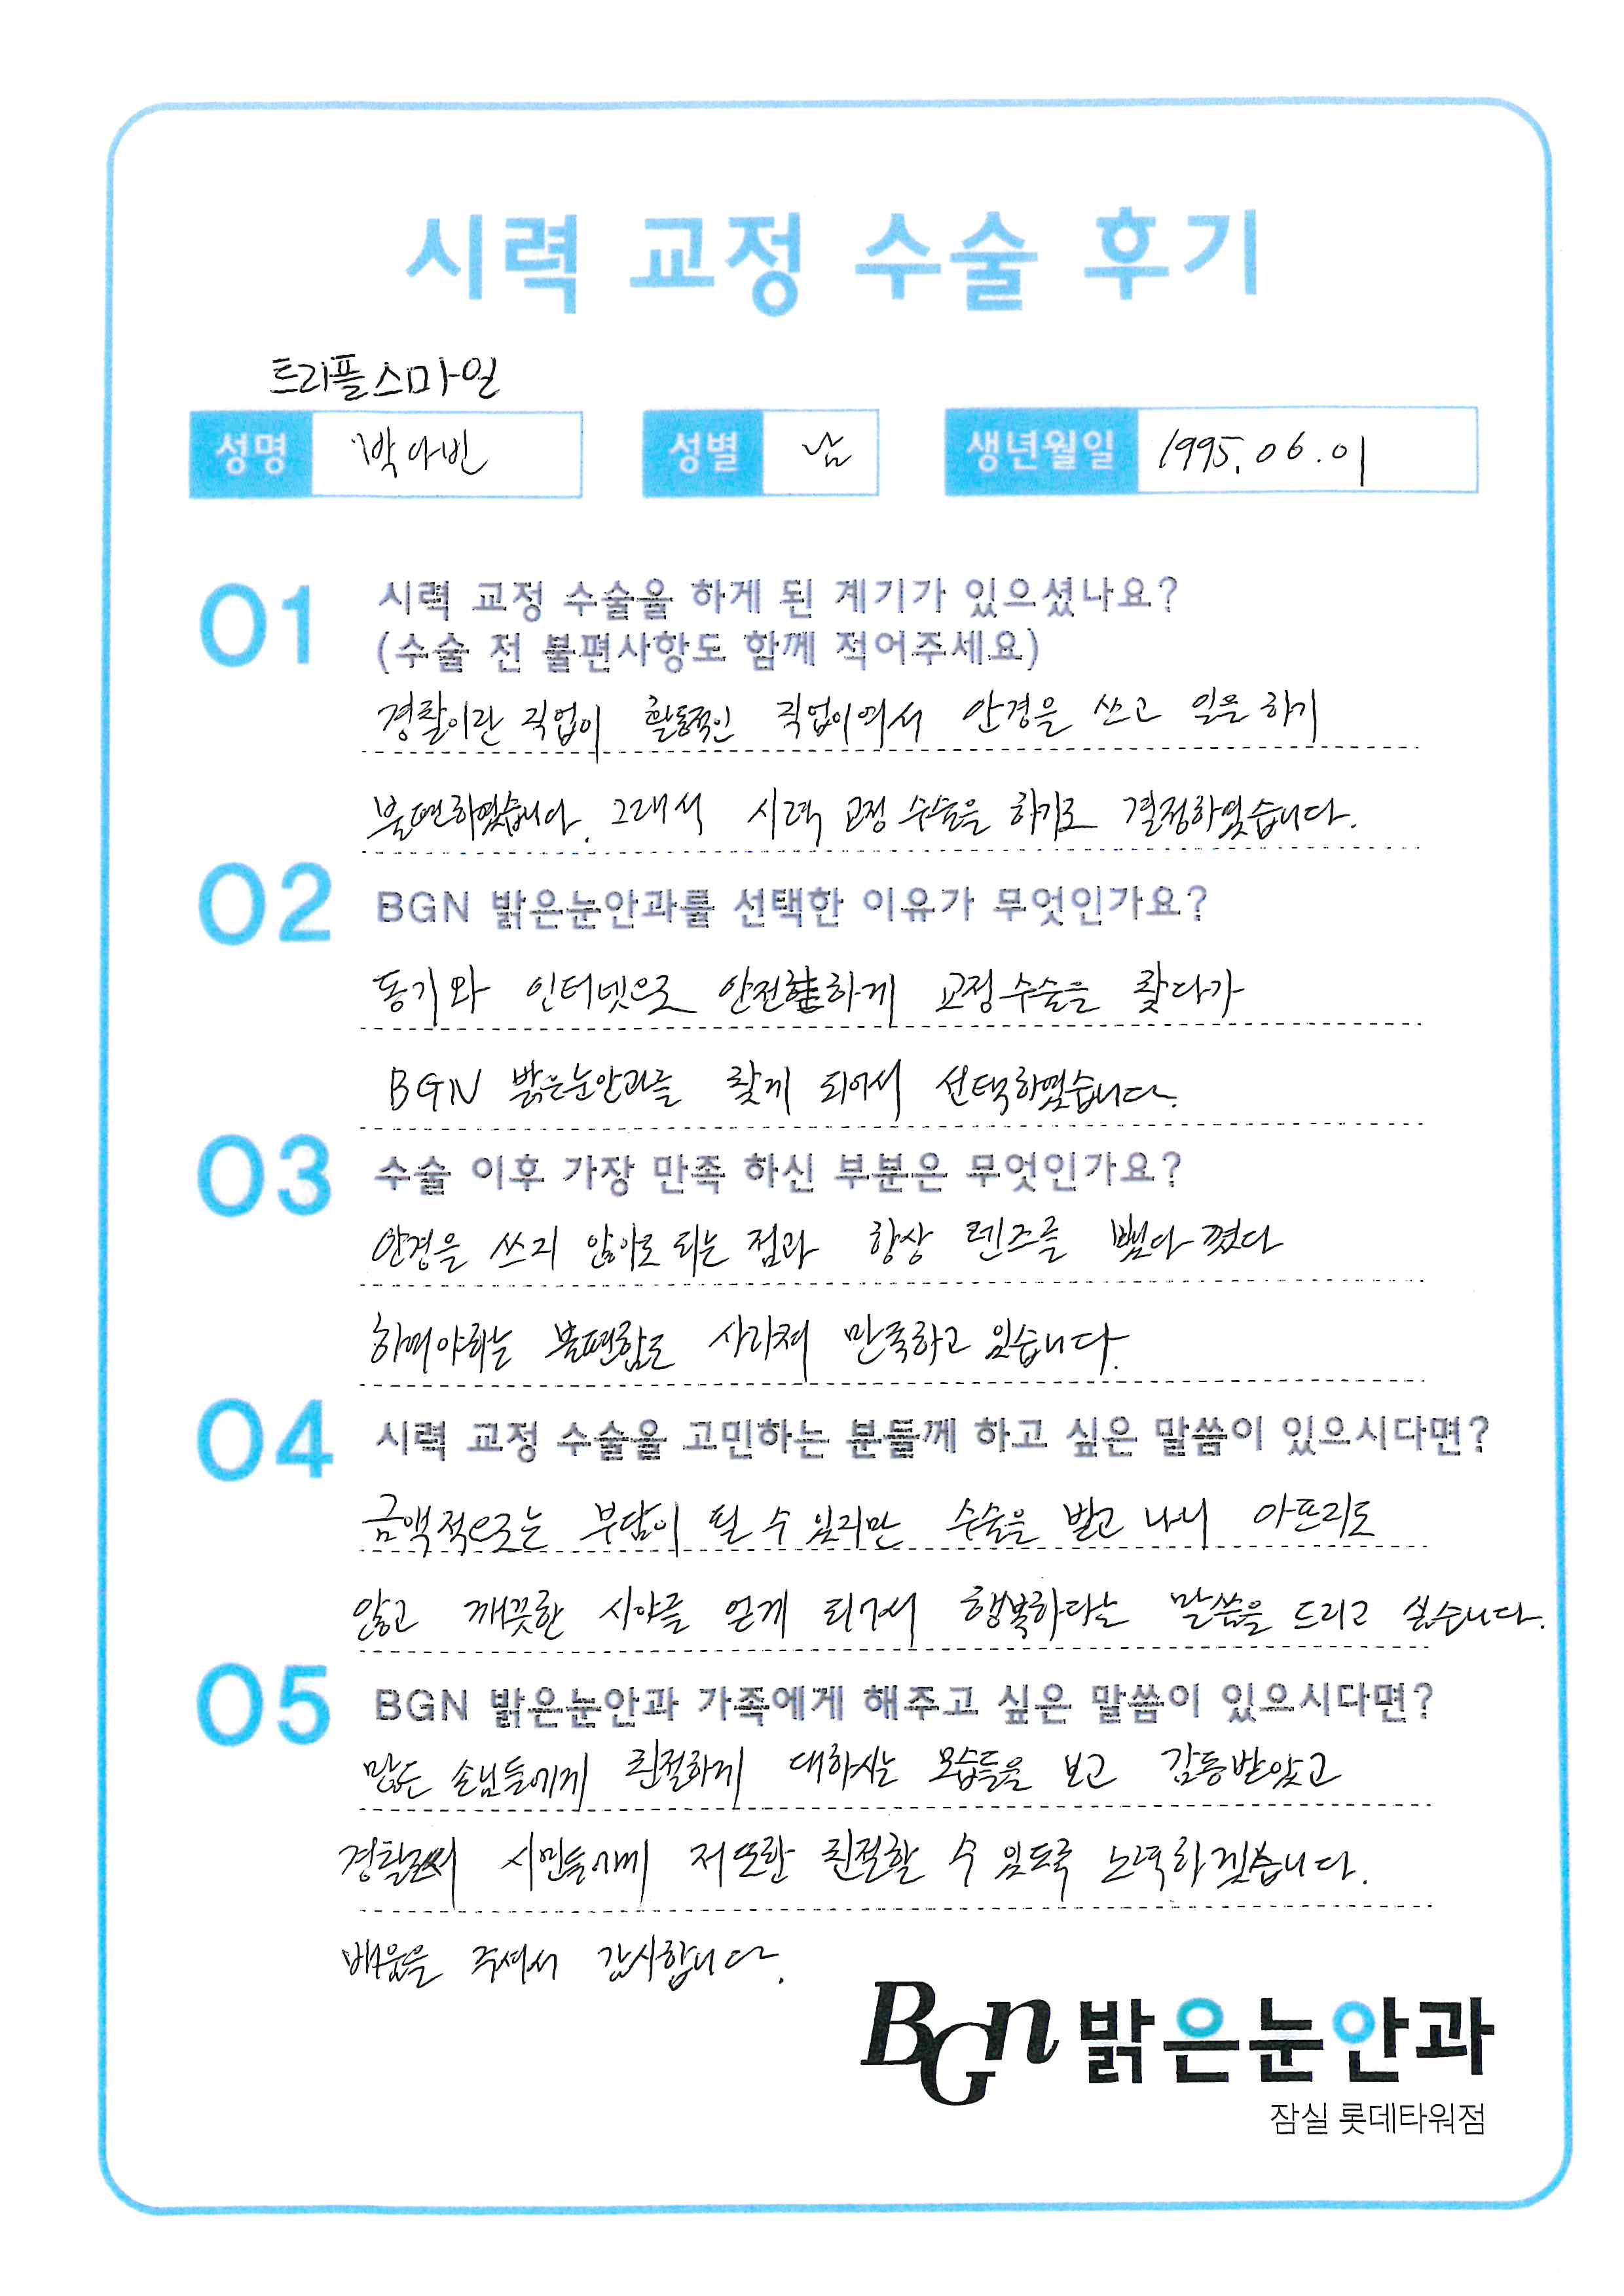 시력 교정 수술 후기
트리플스마일
성명 박아빈 성별 남 생년월일 1995.06.01
01 시력 교정 수술을 하게 된 계기가 있으셨나요?
(수술 전 불편사항도 함께 적어주세요)
경찰이란 직업이 활동적인 직업이여서 안경을 쓰고 일을 하기
불편하였습니다. 그래서 시력 교정 수술을 하기로 결정하였습니다.
02 BGN 밝은눈안과를 선택한 이유가 무엇인가요?
동기와 인터넷으로 안전하게 교정수술을 찾다가
BGN 밝은눈안과를 찾게 되어서 선택하였습니다.
03 수술 이후 가장 만족 하신 부분은 무엇인가요?
안경을 쓰지 않아도 되는 점과 항상 렌즈를 뺐다 꼈다
하여야하는 불편함도 사라져 만족하고 있습니다.
04 시력 교정 수술을 고민하는 분들께 하고 싶은 말씀이 있으시다면?
금액적으로는 부담이 될 수 있지만 수술을 받고 나니 아프지도
않고 깨끗한 시야를 얻게 되어서 행복하다는 말씀을 드리고 싶습니다.
05 BGN 밝은눈안과 가족에게 해주고 싶은 말씀이 있으시다면?
많은 손님들에게 친절하게 대하시는 모습들을 보고 감동받았고
경찰로써 시민들에게 저 또한 친절할 수 있도록 노력하겠습니다.
배움을 주셔서 감사합니다.
BGN 밝은눈안과
잠실 롯데타워점